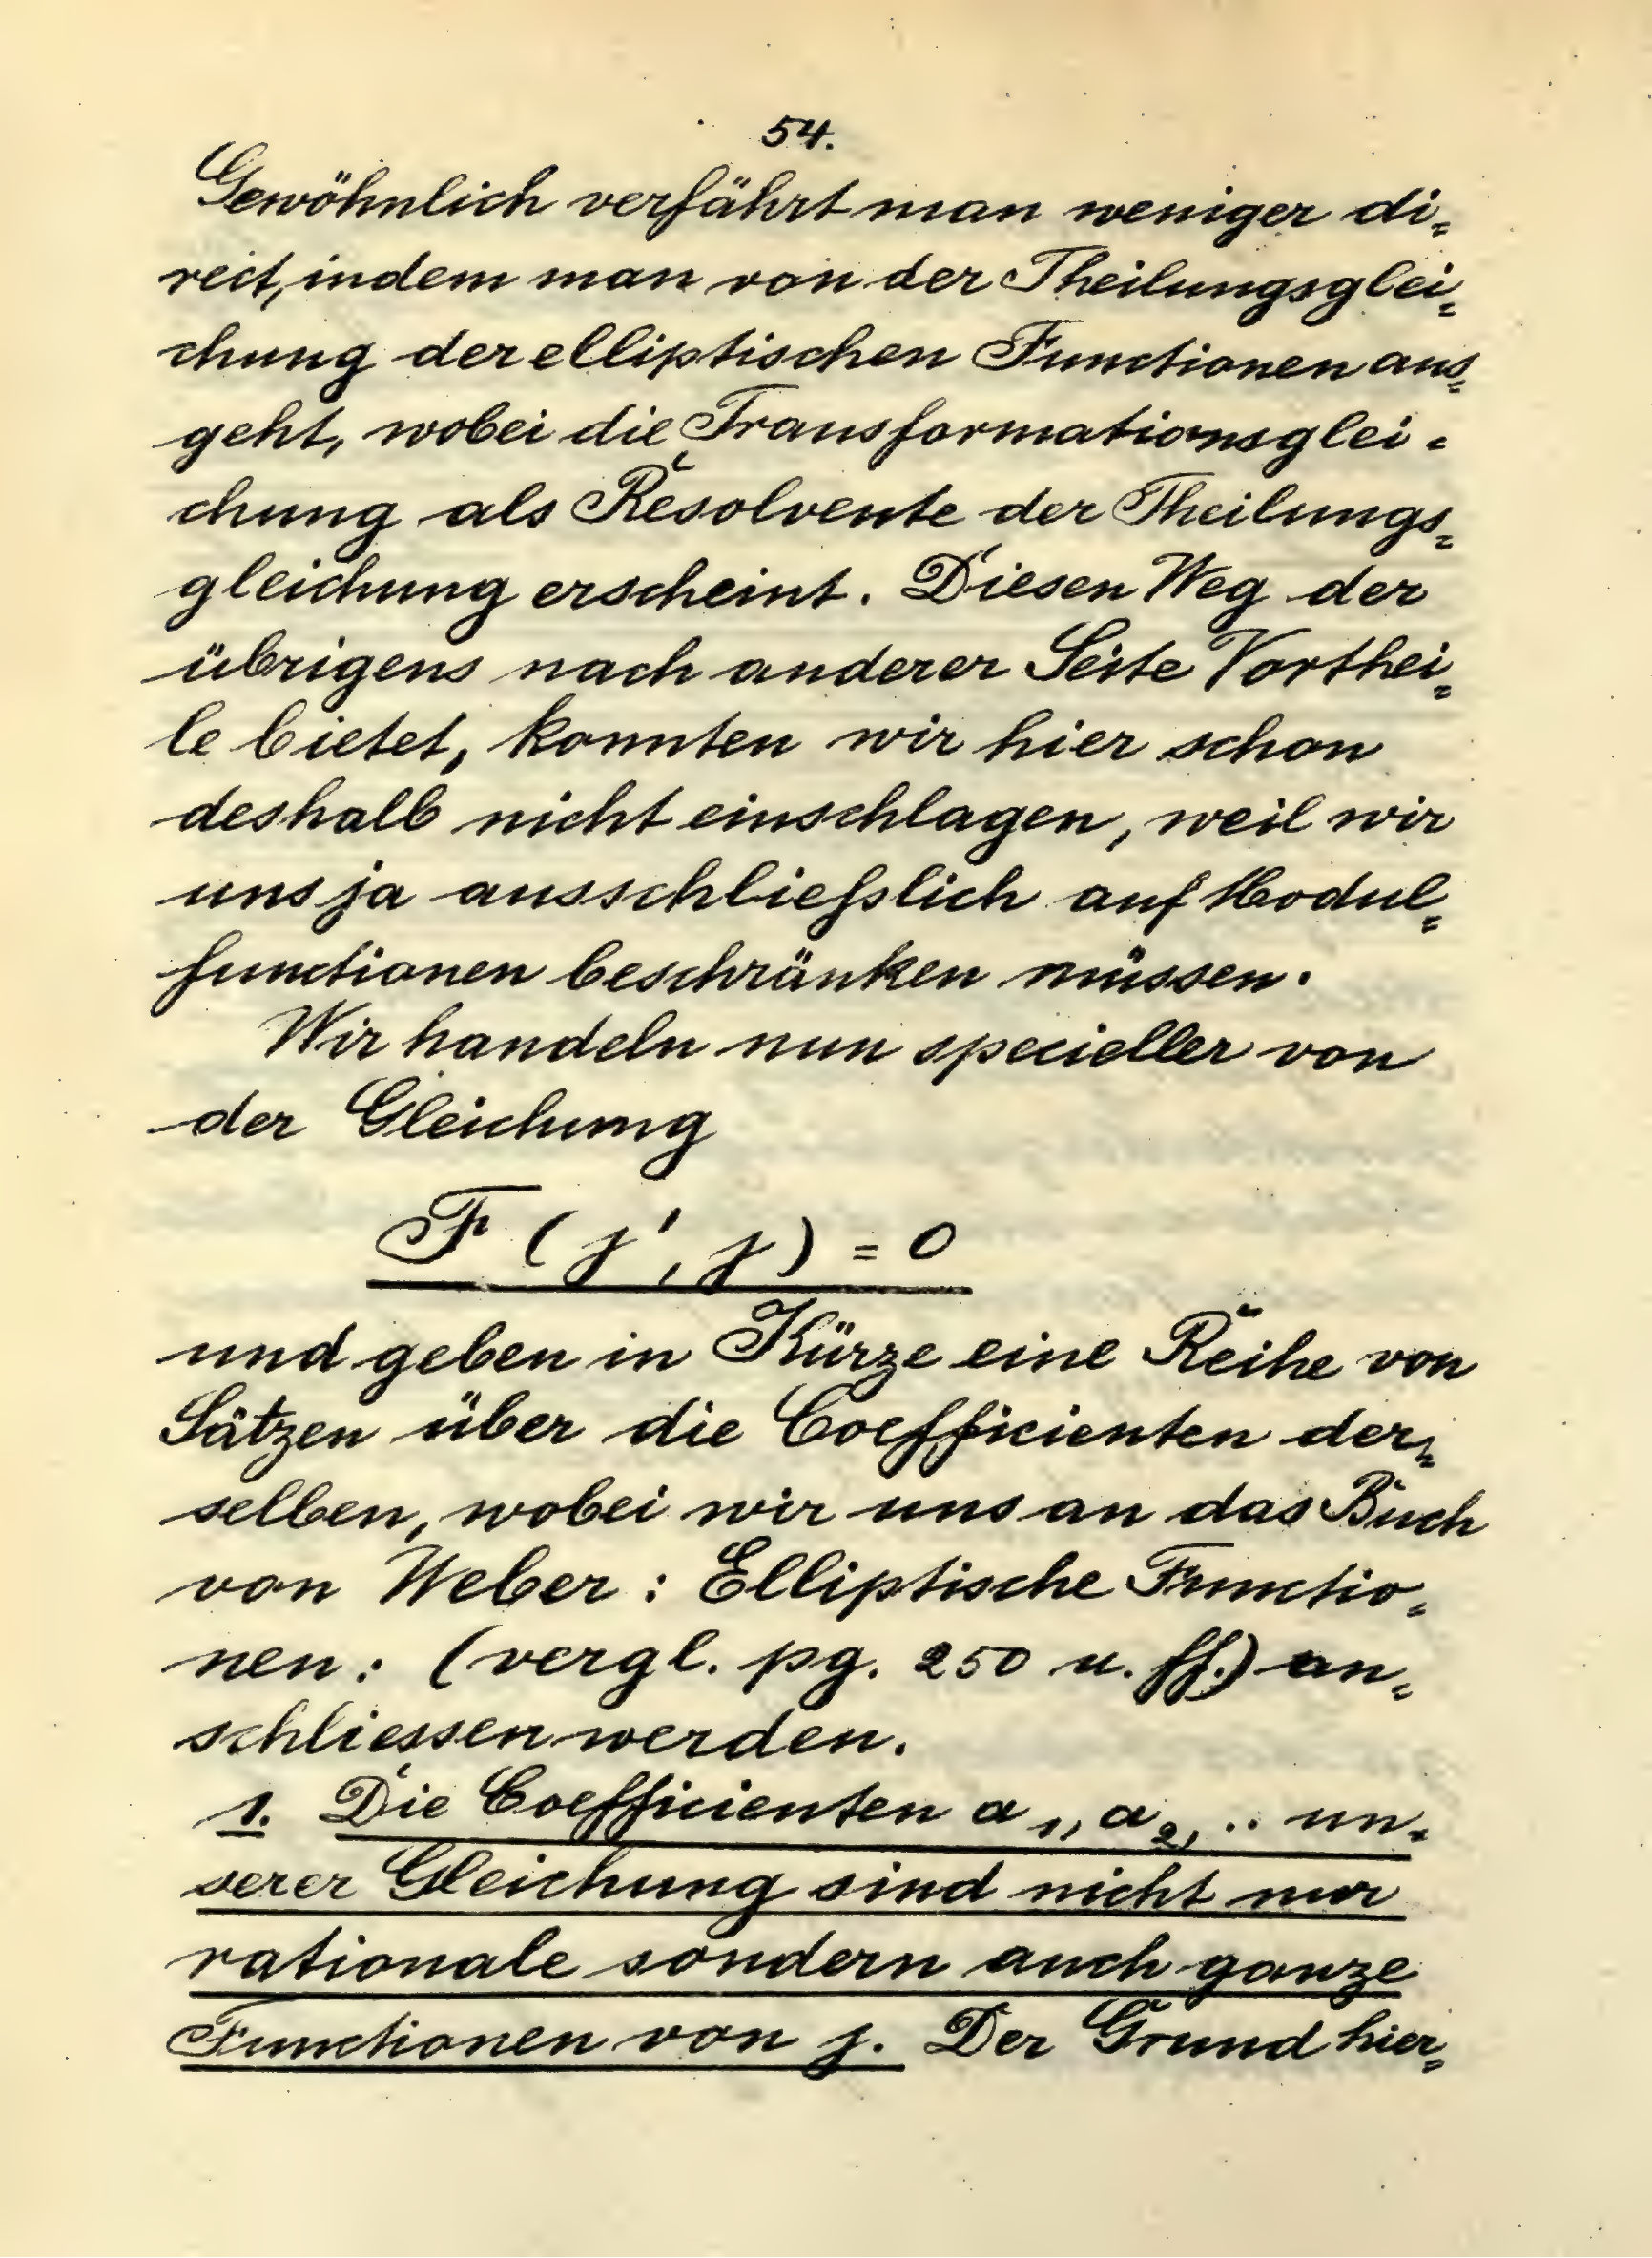 54.
Gewöhnlich verfährt man weniger di=
rect, indem man von der Theilungsglei=
chung der elliptischen Functionen aus=
geht, wobei die Transformationsglei=
chung als Resolvente der Theilungs=
gleichung erscheint. Diesen Weg der
übrigens nach anderer Seite Vorthei=
le bietet, konnten wir hier schon
deshalb nicht einschlagen, weil wir
uns ja ausschließlich auf Modul=
functionen beschränken müssen.
Wir handeln nun specieller von
der Gleichung
F (j', j) = 0
und geben in Kürze eine Reihe von
Sätzen über die Coefficienten der=
selben, wobei wir uns an das Buch
von Weber: Elliptische Functio=
nen: (vergl. pg. 250 u. ff.) an=
schliessen werden.
1. Die Coefficienten a₁, a₂, .. un=
serer Gleichung sind nicht nur
rationale sondern auch ganze
Functionen von j. Der Grund hier=